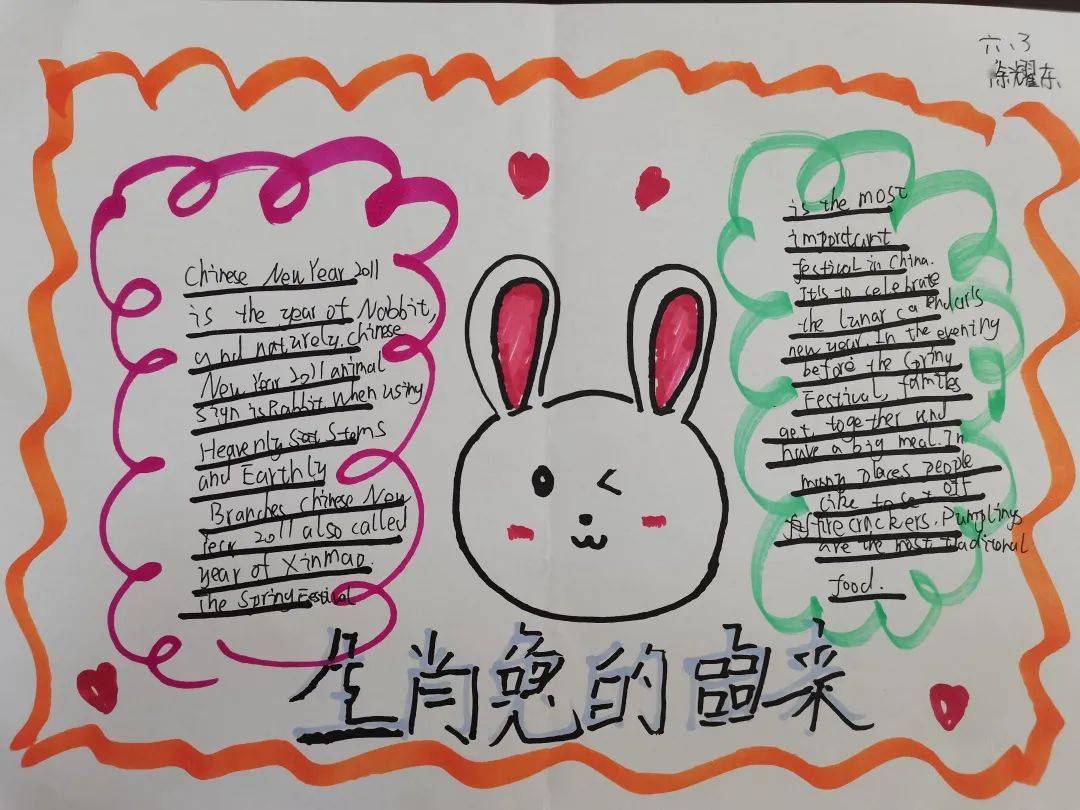 六、3
徐耀东
Chinese New Year 2011
is the year of Nobbit,
and naturely.chinese
New Year 2011 animal
sign is Rabbit. When using
Heavenly Stems
and Earthly
Branches chinese New
Year 2011 also called
year of xinmao.
the Spring Festival
is the most
important
festival in China.
It's to celebrate
the lunar calendar's
new year. In the evening
before the Spring
Festival, familes
get together and
have a big meal. In
many places people
like to set off
firecrackers. Pumplings
are the most traditional
food.
生肖兔的由来